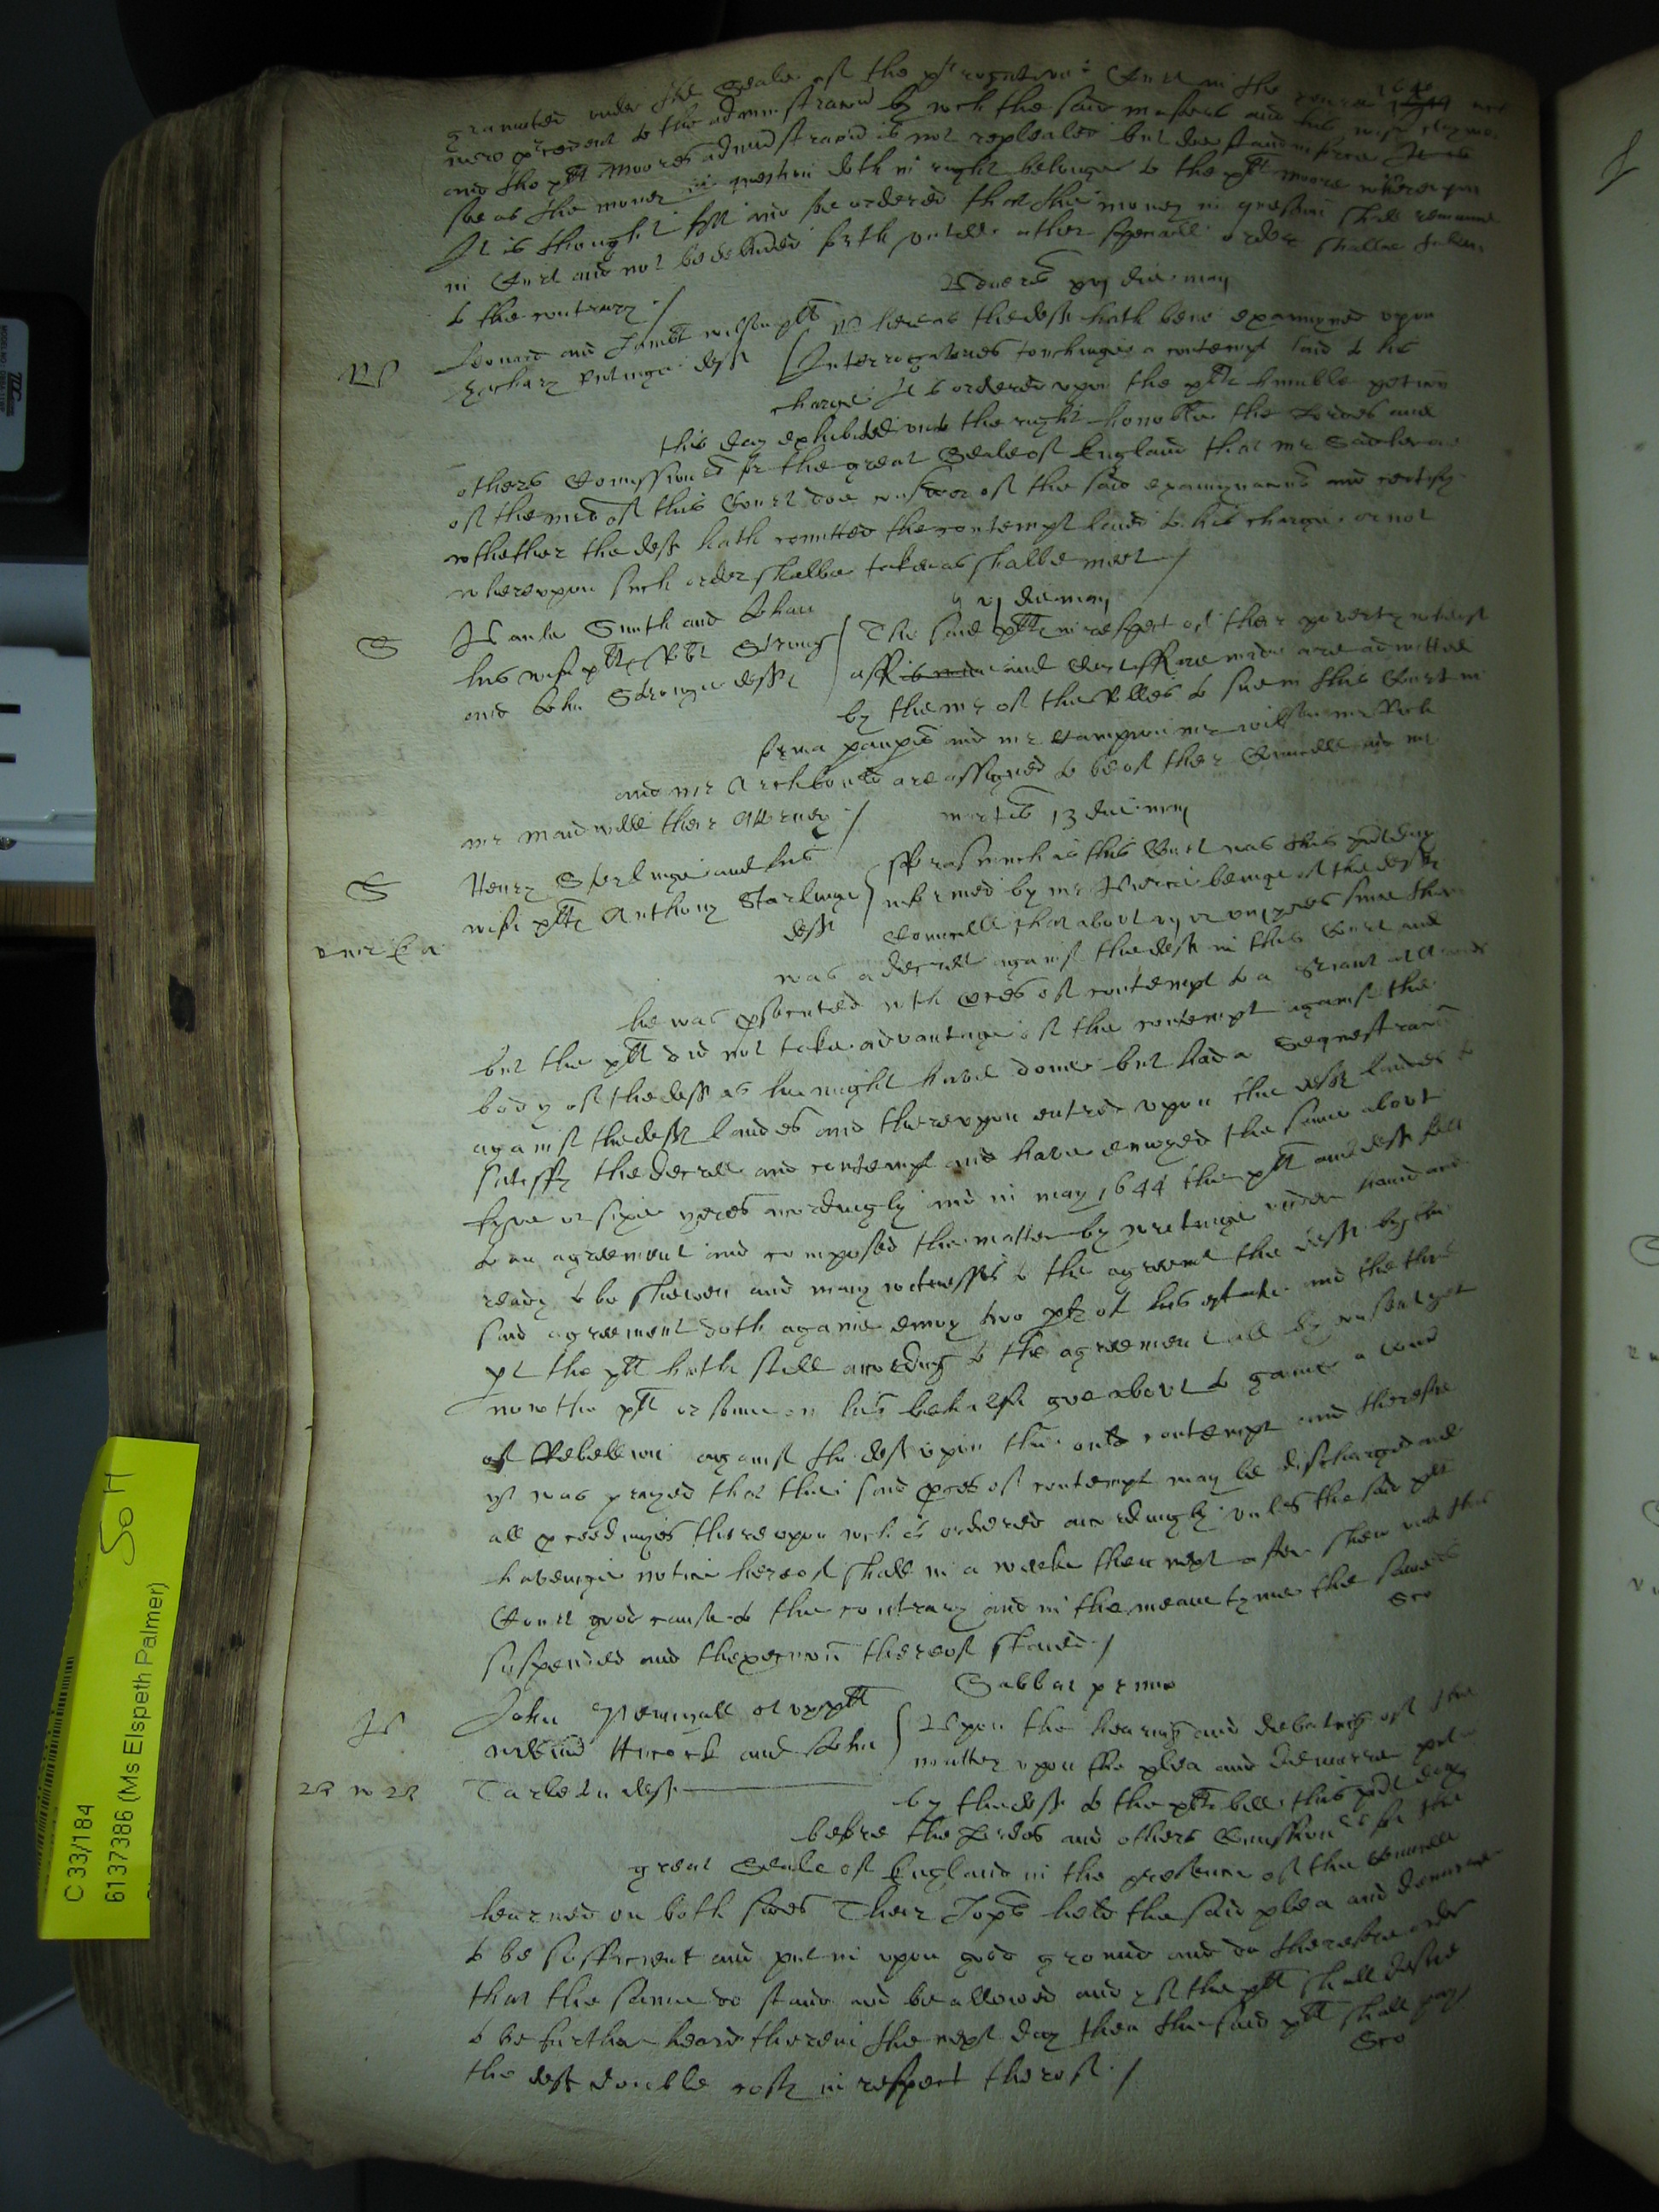 graunted under the Seale of the prerogative Court in the yeare 1640
were precedent to the administracion by wch the said and his wife clayme
and the plt Moores administracion is not repealed but doe stand in force
soe as the money in question doth in right belonge to the plt Moore whereupon
It is thought fitt and soe ordered that the money in question shall remaine
in Court and not be delivered forth untill other speciall order shalbe taken
to the contrary /
Veneris xvj die may
Leonard and Lambt wilson plts Whereas the deft hath bene examyned upon
Zachary deft Interrogatories touchinge a contempt laid to his
charge It is ordered upon the plts humble peticon
this day exhibited unto the right honoble the Lordes and
others Comissionrs for the great Seale of England that mr Sadler one
of the mrs of this Court doe consider of the said examynacons and certify
whether the deft hath comitted the contempt laide to his charge or not
whereupon such order shalbe taken as shalbe meet /
S
xvj die may
Smith and Johan The said plts in respect of their poverty whereof
his wife plts Robt Strong affid is made and Certificate made are admitted
and John Stronge defts by the mr of the Rolles to sue in this Court in
forma pauperis and mr Campion mr wilson mr
and mr Archbould are assigned to be of their Councell and mr
mr Maidwell their Attorney / martis 13 die may
S
Henry Sterlinge and his fforasmuch as this Court was this present day
wife plts Anthony Starlinge informed by mr Pierce beinge of the defts
deft Councell that about vij or viij yeres since there
was a decree against the deft in this Court and
he was prosecuted with proces of contempt to a Sriant att armes
but the plt did not take advantage of the contempt against the
body of the deft as hee might have done but had a Sequestracon
against the defts landes and thereupon entred upon the defts landes to
satisfy the decree and contempt and have enioyed the same about
fyve or sixe yeres accordingly and in may 1644 the plt and deft fell
to an agreement and composed the matter by writinge under hand and
ready to be shewen and many witnesses to the agreemt the deft by the
said agreement doth againe enioy two pts of his estate and the third
pt the plt hath still according to the agreement all by consent yet
now the plt or some on his behalfe goe about to gaine a Comd
of Rebellion against the deft upon the ould contempt and therefore
yt was prayed that their said proces of contempt may be discharged and
all proceedinges thereupon wch is ordered accordingly unles the said plt
havinge notice hereof shall in a weeke then next after shew unto this
Court good cause to the contrary and in the meane tyme the same is
suspended and thexecucon thereof staied / Sco
Sabbat primo
John Pennyall et ux plt Upon the hearing and debating of the
Hicock and John matter upon the plea and demurrer put in
Tarleton deft by the deft to the plts bill this prsent day
before the Lordes and others Comissionrs for the
great Seale of England in the presence of the Councell
learned on both sides Their Lopps held the said plea and demurrer
to be sufficient and put in upon good ground and do therefore order
that the same do stand and be allowed and yf the plt shall desire
to be further heard therein the next day then the said plt shall pay
the deft double costs in respect therof / Sco
C 33/184
6137386 (Ms Elspeth Palmer)
So H